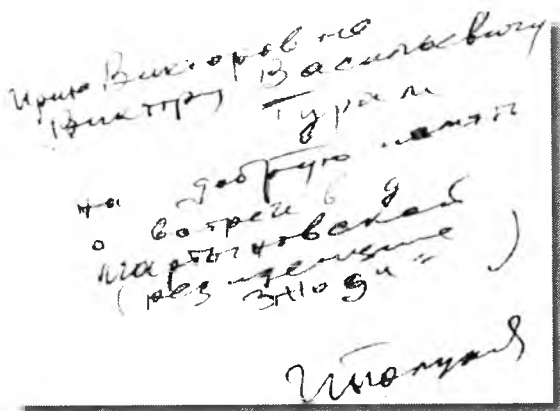 Ирине Викторовне
Виктору Васильевичу
Турам
на добрую память
о встрече в д
Мартыновской
(резиденция
"Зюзи")